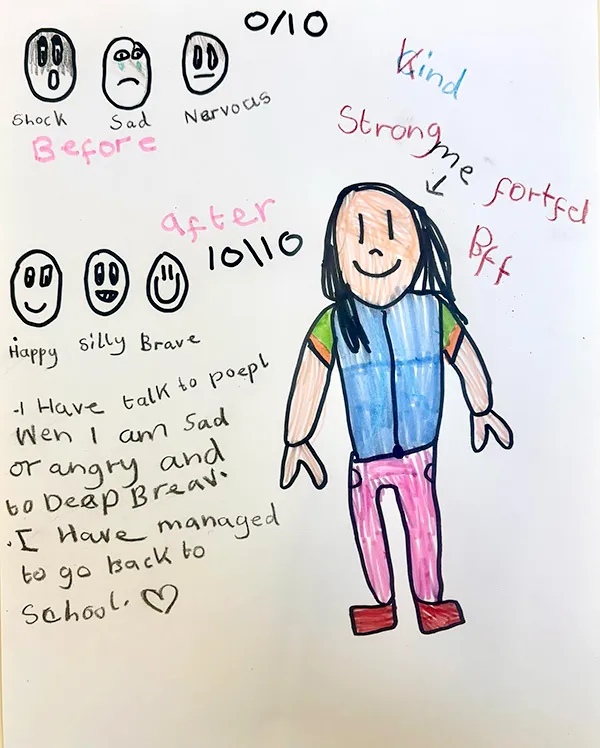 0/10
Shock Sad Nervous
Before
Kind
Strong
me
fortfel
Bff
after
10\10
Happy Silly Brave
-I Have talk to poepl
Wen I am Sad
or angry and
to Deap Breav.
.I Have managed
to go Back to
School.